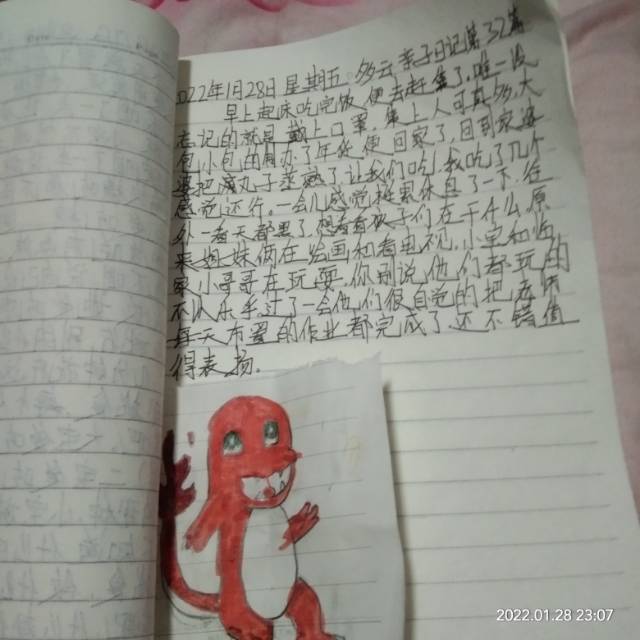 2022年1月28日 星期五 多云 亲子日记第32篇
早上起床吃完饭便去赶集了,唯一没
忘记的就是戴上口罩,集上人可真多,大
包小包的周办了年货便回家了回到家婆
婆把丸子蒸熟了让我们吃,我吃了几个
感觉还行。一会儿感觉挺累休息了一下,
一看天都黑了想看看孩子们在干什么,原
来姐妹俩在绘画和看电视,小宝和临
家小哥哥在玩耍,你别说他们都玩的
不认乐乎过了一会他们很自觉的把老师
每天布置的作业都完成了还不错值
得表扬。
2022.01.28 23:07